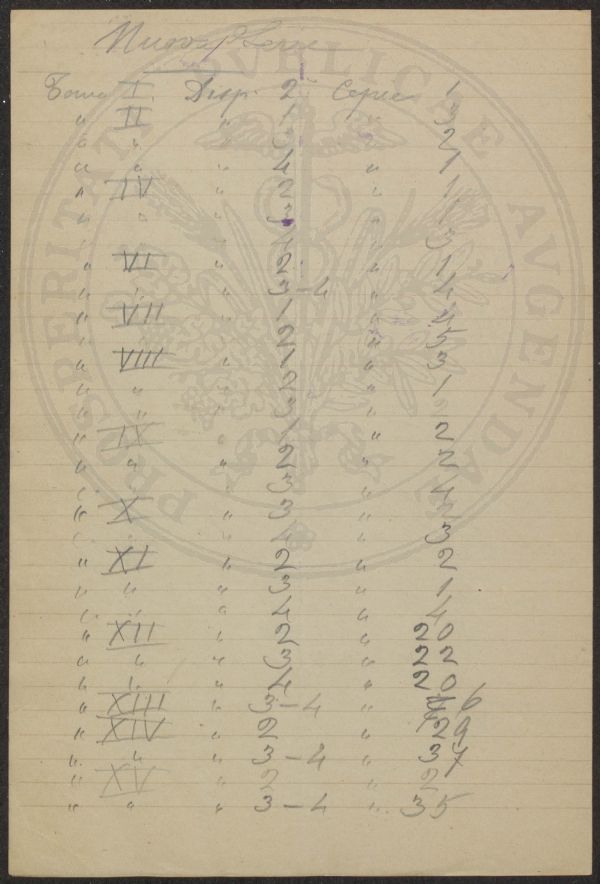 Nuova Serie
Tomo I. Disp. 2 Copie 1
" II " 1 " 3
" " " 3 " 2
" " " 4 " 1
" IV " 2 " 1
" " " 3 " 1
" " " 4 " 3
" VI " 2 " 1
" " " 3-4 " 4
" VII " 1 " 4
" " 2 " 5
" VIII " 1 " 3
" " " 2 " 1
" " " 3 " 2
" IX " 1 " 2
" " " 2 " 2
" " 3 " 4
" X " 3 " 2
" " " 4 " 3
" XI " 2 " 2
" " " 3 " 1
" " " 4 " 4
" XII " 2 " 20
" " " 3 " 22
" " " 4 " 20
" XIII " 3-4 " 6
" XIV " 2 " 29
" " " 3-4 " 37
" XV " 2 " 2
" " " 3-4 " 35
PROSPERITATI PVBLICAE AVGENDAE